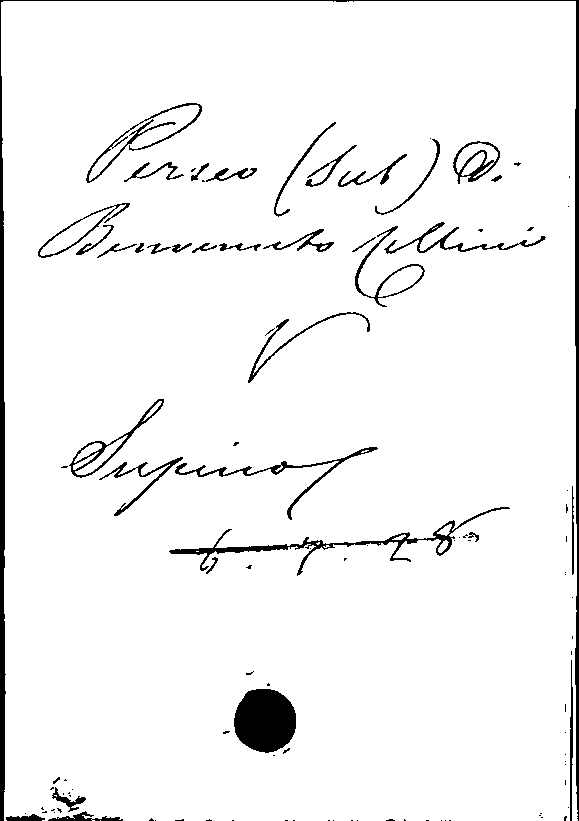 Perseo (Sul) Di
Benvenuto Cellini
V
Supino
6. 7. 28